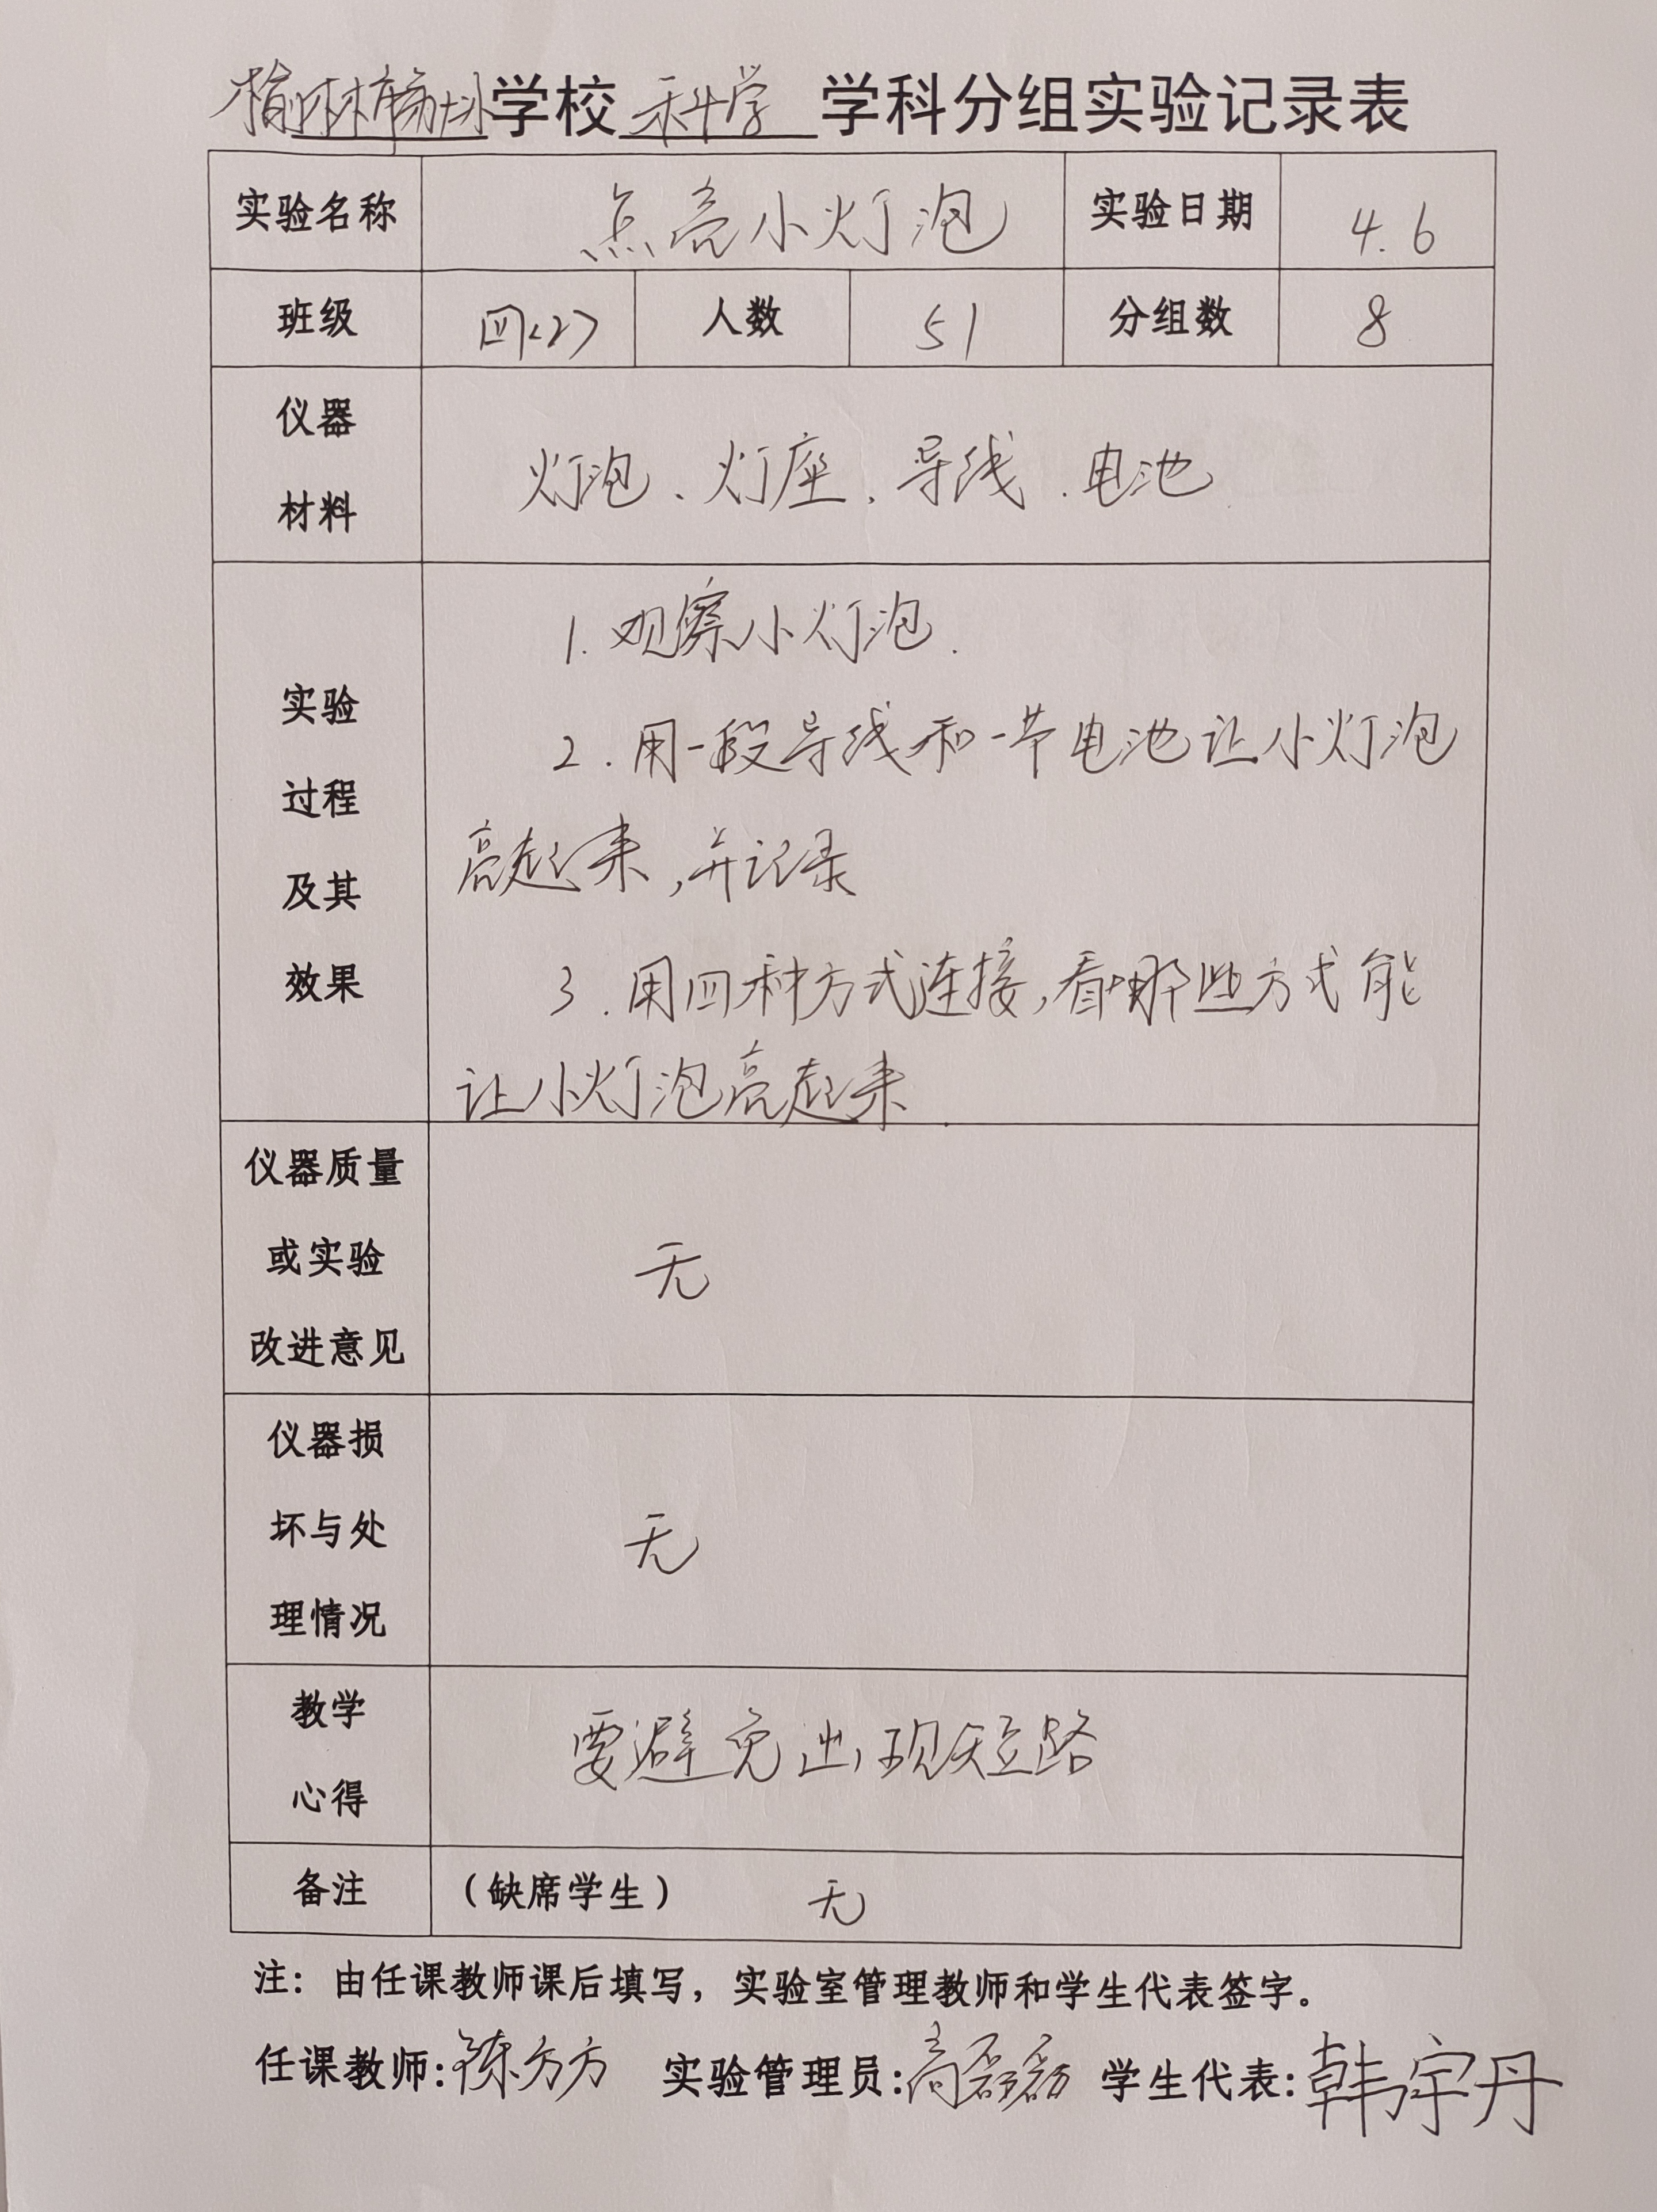 学校 科学 学科分组实验记录表
实验名称 点亮小灯泡 实验日期 4.6
班级 四<2> 人数 51 分组数 8
仪器
材料
灯泡、灯座、导线、电池
实验
过程
及其
效果
1.观察小灯泡.
2.用一段导线和一节电池让小灯泡
亮起来,并记录
3.用四种方式连接,看哪些方式能
让小灯泡亮起来.
仪器质量
或实验
改进意见
无
仪器损
坏与处
理情况
无
教学
心得
要避免出现短路
备注 (缺席学生) 无
注：由任课教师课后填写，实验室管理教师和学生代表签字。
任课教师:陈方方 实验管理员:高磊磊 学生代表:韩宇丹